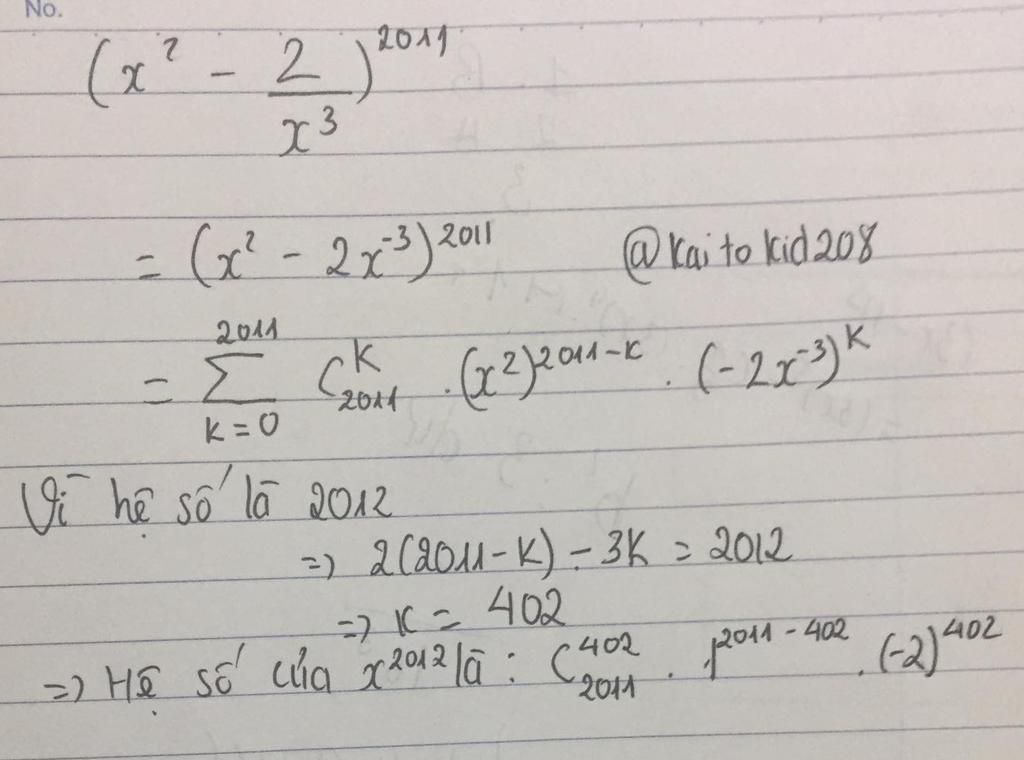 No.
(x² - 2/x³)²⁰¹¹
= (x² - 2x⁻³)²⁰¹¹ @kaitokid208
= ∑_{k=0}^{2011} C_{2011}^{k} . (x²)^{2011-k} . (-2x⁻³)^{k}
Vì hệ số là 2012
=> 2(2011-k) - 3k = 2012
=> k = 402
=> Hệ số của x²⁰¹² là : C_{2011}^{402} . 1^{2011-402} . (-2)^{402}